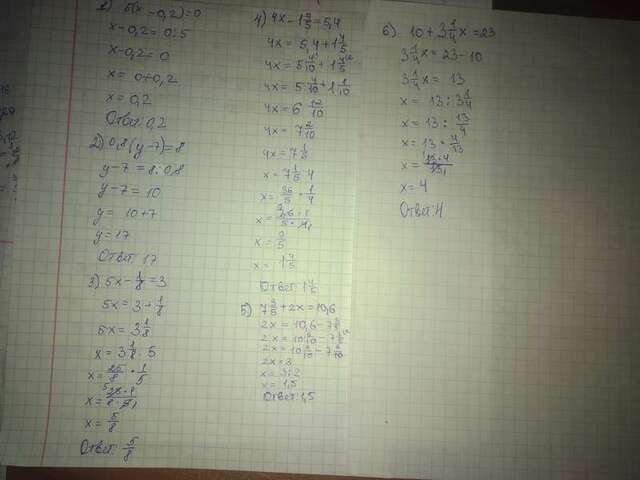 1) 5(x-0,2)=0
x-0,2=0:5
x-0,2=0
x=0+0,2
x=0,2
Ответ: 0,2
2) 0,8(y-7)=8
y-7=8:0,8
y-7=10
y=10+7
y=17
Ответ: 17
3) 5x-1/8=3
5x=3+1/8
5x=3 1/8
x=3 1/8:5
x=25/8·1/5
x=25·1/8·5
x=5/8
Ответ: 5/8
4) 4x-1 4/5=5,4
4x=5,4+1 4/5
4x=5 4/10+1 4/5
4x=5 4/10+1 8/10
4x=6 12/10
4x=7 2/10
4x=7 1/5
x=7 1/5:4
x=36/5·1/4
x=36·1/5·4
x=9/5
x=1 4/5
Ответ: 1 4/5
5) 7 3/5+2x=10,6
2x=10,6-7 3/5
2x=10 6/10-7 3/5
2x=10 6/10-7 6/10
2x=3
x=3:2
x=1,5
Ответ: 1,5
6) 10+3 1/4x=23
3 1/4x=23-10
3 1/4x=13
x=13:3 1/4
x=13:13/4
x=13·4/13
x=13·4/13
x=4
Ответ: 4